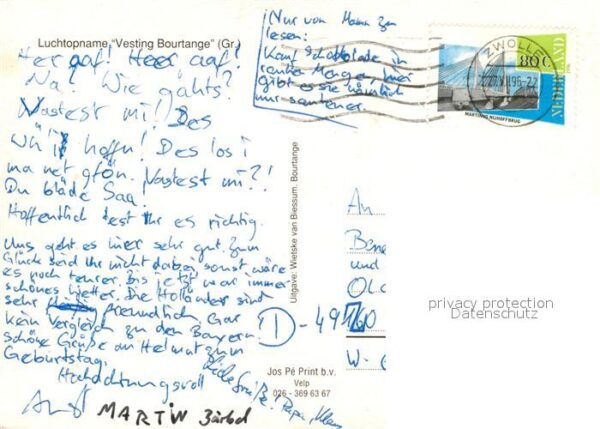 Luchtopname "Vesting Bourtange" (Gr.)
Her auf! Heer auf!
Na? Wie gahts?
Vastest mi! Des
wü i hoffn! Des los i
ma net gfoln. Vastest mi?!
Du bläde Sau!
Hoffentlich lest ihr es richtig.
Uns geht es hier sehr gut. Zum
Glück seid ihr nicht dabei sonst wäre
es noch teurer. Bis jetzt war immer
schönes Wetter. Die Holländer sind
sehr freundlich, Gar
kein Vergleich zu den Bayern.
schöne Grüße an Helmut zum
Geburtstag.
Hochachtungsvoll
MARTIN Bärbel
Liebe Grüße! Papa,
(Nur von Mama zu
lesen:
Kauf Schokolade in
rauen Mengen, hier
gibt es sie nämlich
nur
ZWOLLE
80 C
NEDERLAND
MARTINUS NIJHOFFBRUG
Uitgave: Wietske van Biessum, Bourtange
An
und
D-49
W-
Jos Pé Print b.v.
Velp
026 - 369 63 67
privacy protection
Datenschutz